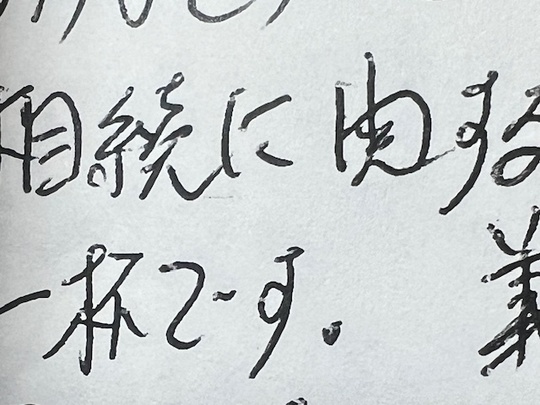 相続に関する
一杯です。 義